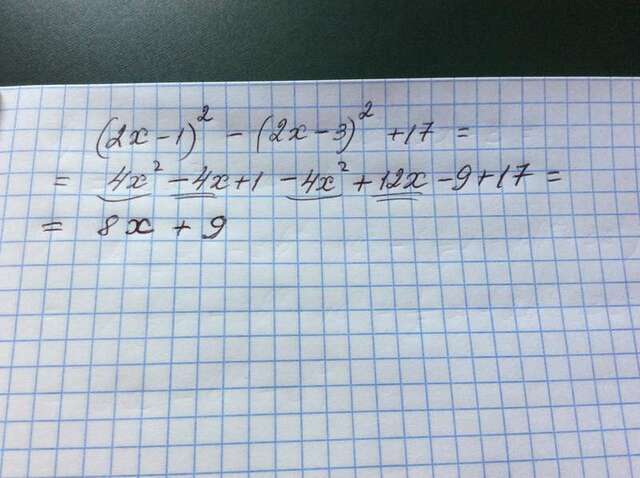 (2x-1)² - (2x-3)² +17 =
= 4x² - 4x + 1 - 4x² + 12x - 9 + 17 =
= 8x + 9